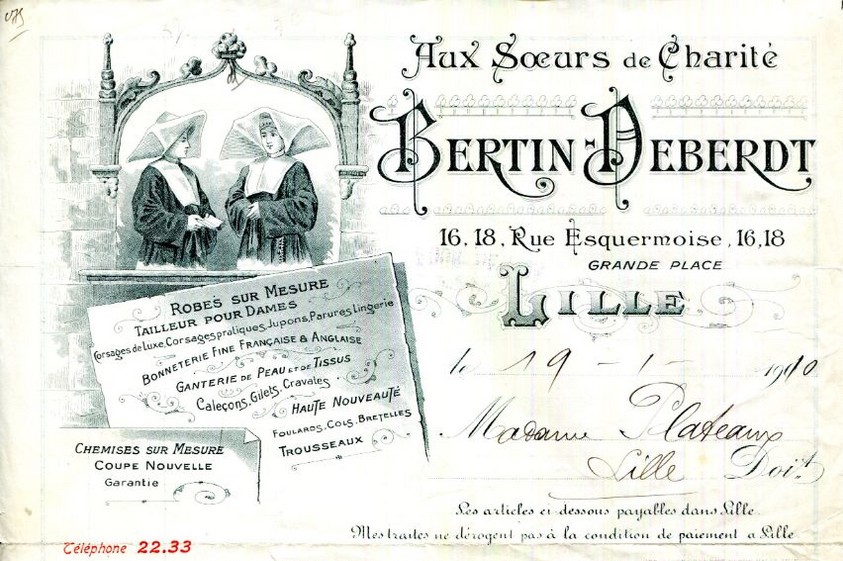 Aux Sœurs de Charité
BERTIN-DEBERDT
16, 18, Rue Esquermoise, 16, 18
GRANDE PLACE
LILLE
le 19 - 1 - 1910
Madame Plateaux
Lille Doit
ROBES SUR MESURE
TAILLEUR POUR DAMES
Corsages de Luxe, Corsages pratiques, Jupons, Parures Lingerie
BONNETERIE FINE FRANÇAISE & ANGLAISE
GANTERIE DE PEAU ET DE TISSUS
Caleçons, Gilets, Cravates
HAUTE NOUVEAUTÉ
FOULARDS, COLS, BRETELLES
TROUSSEAUX
CHEMISES SUR MESURE
COUPE NOUVELLE
Garantie
Les articles ci dessous payables dans Lille.
Mes traites ne dérogent pas à la condition de paiement a Lille
Téléphone 22.33